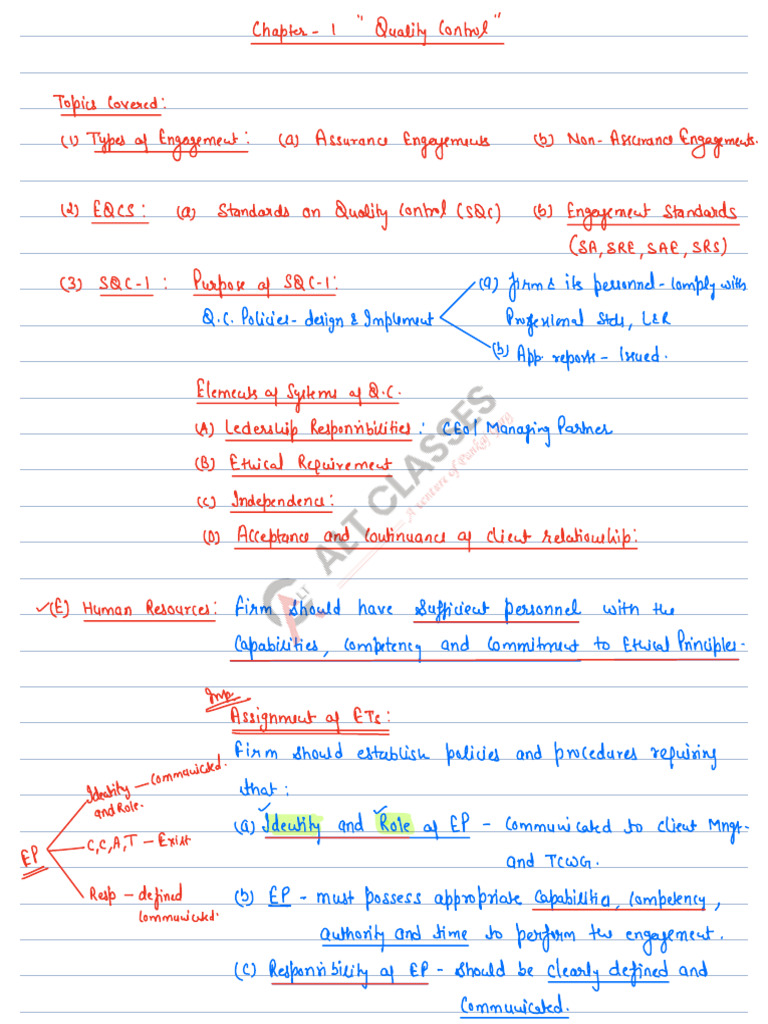 Chapter - 1 "Quality Control"
Topics Covered:
(1) Types of Engagement: (a) Assurance Engagements (b) Non-Assurance Engagements.
(2) EQCS: (a) Standards on Quality Control (SQC) (b) Engagement Standards
(SA, SRE, SAE, SRS)
(3) SQC-1: Purpose of SQC-1:
(a) Firm & its personnel - comply with
Q.C. Policies - design & Implement
Professional Stds, L&R
(b) App. reports - Issued.
Elements of Systems of Q.C.
(A) Ledership Responsibilities: CEO/Managing Partner
(B) Ethical Requirement
(C) Independence:
(D) Acceptance and Continuance of client relationship:
✓(E) Human Resources: Firm should have sufficient personnel with the
Capabilities, Competency and Commitment to Ethical Principles.
Imp.
Assignment of ETs:
Firm should establish policies and procedures requiring
that:
(a) Identity and Role of EP - Communicated to client Mngt.
and TCWG.
(b) EP - must possess appropriate Capabilities, Competency,
authority and time to perform the engagement.
(c) Responsibility of EP - should be clearly defined and
Communicated.
EP
Identity and Role. - Communicated.
C, C, A, T - Exist
Resp - defined
Communicated.
ALT CLASSES
A venture of Pankaj Garg
ALT